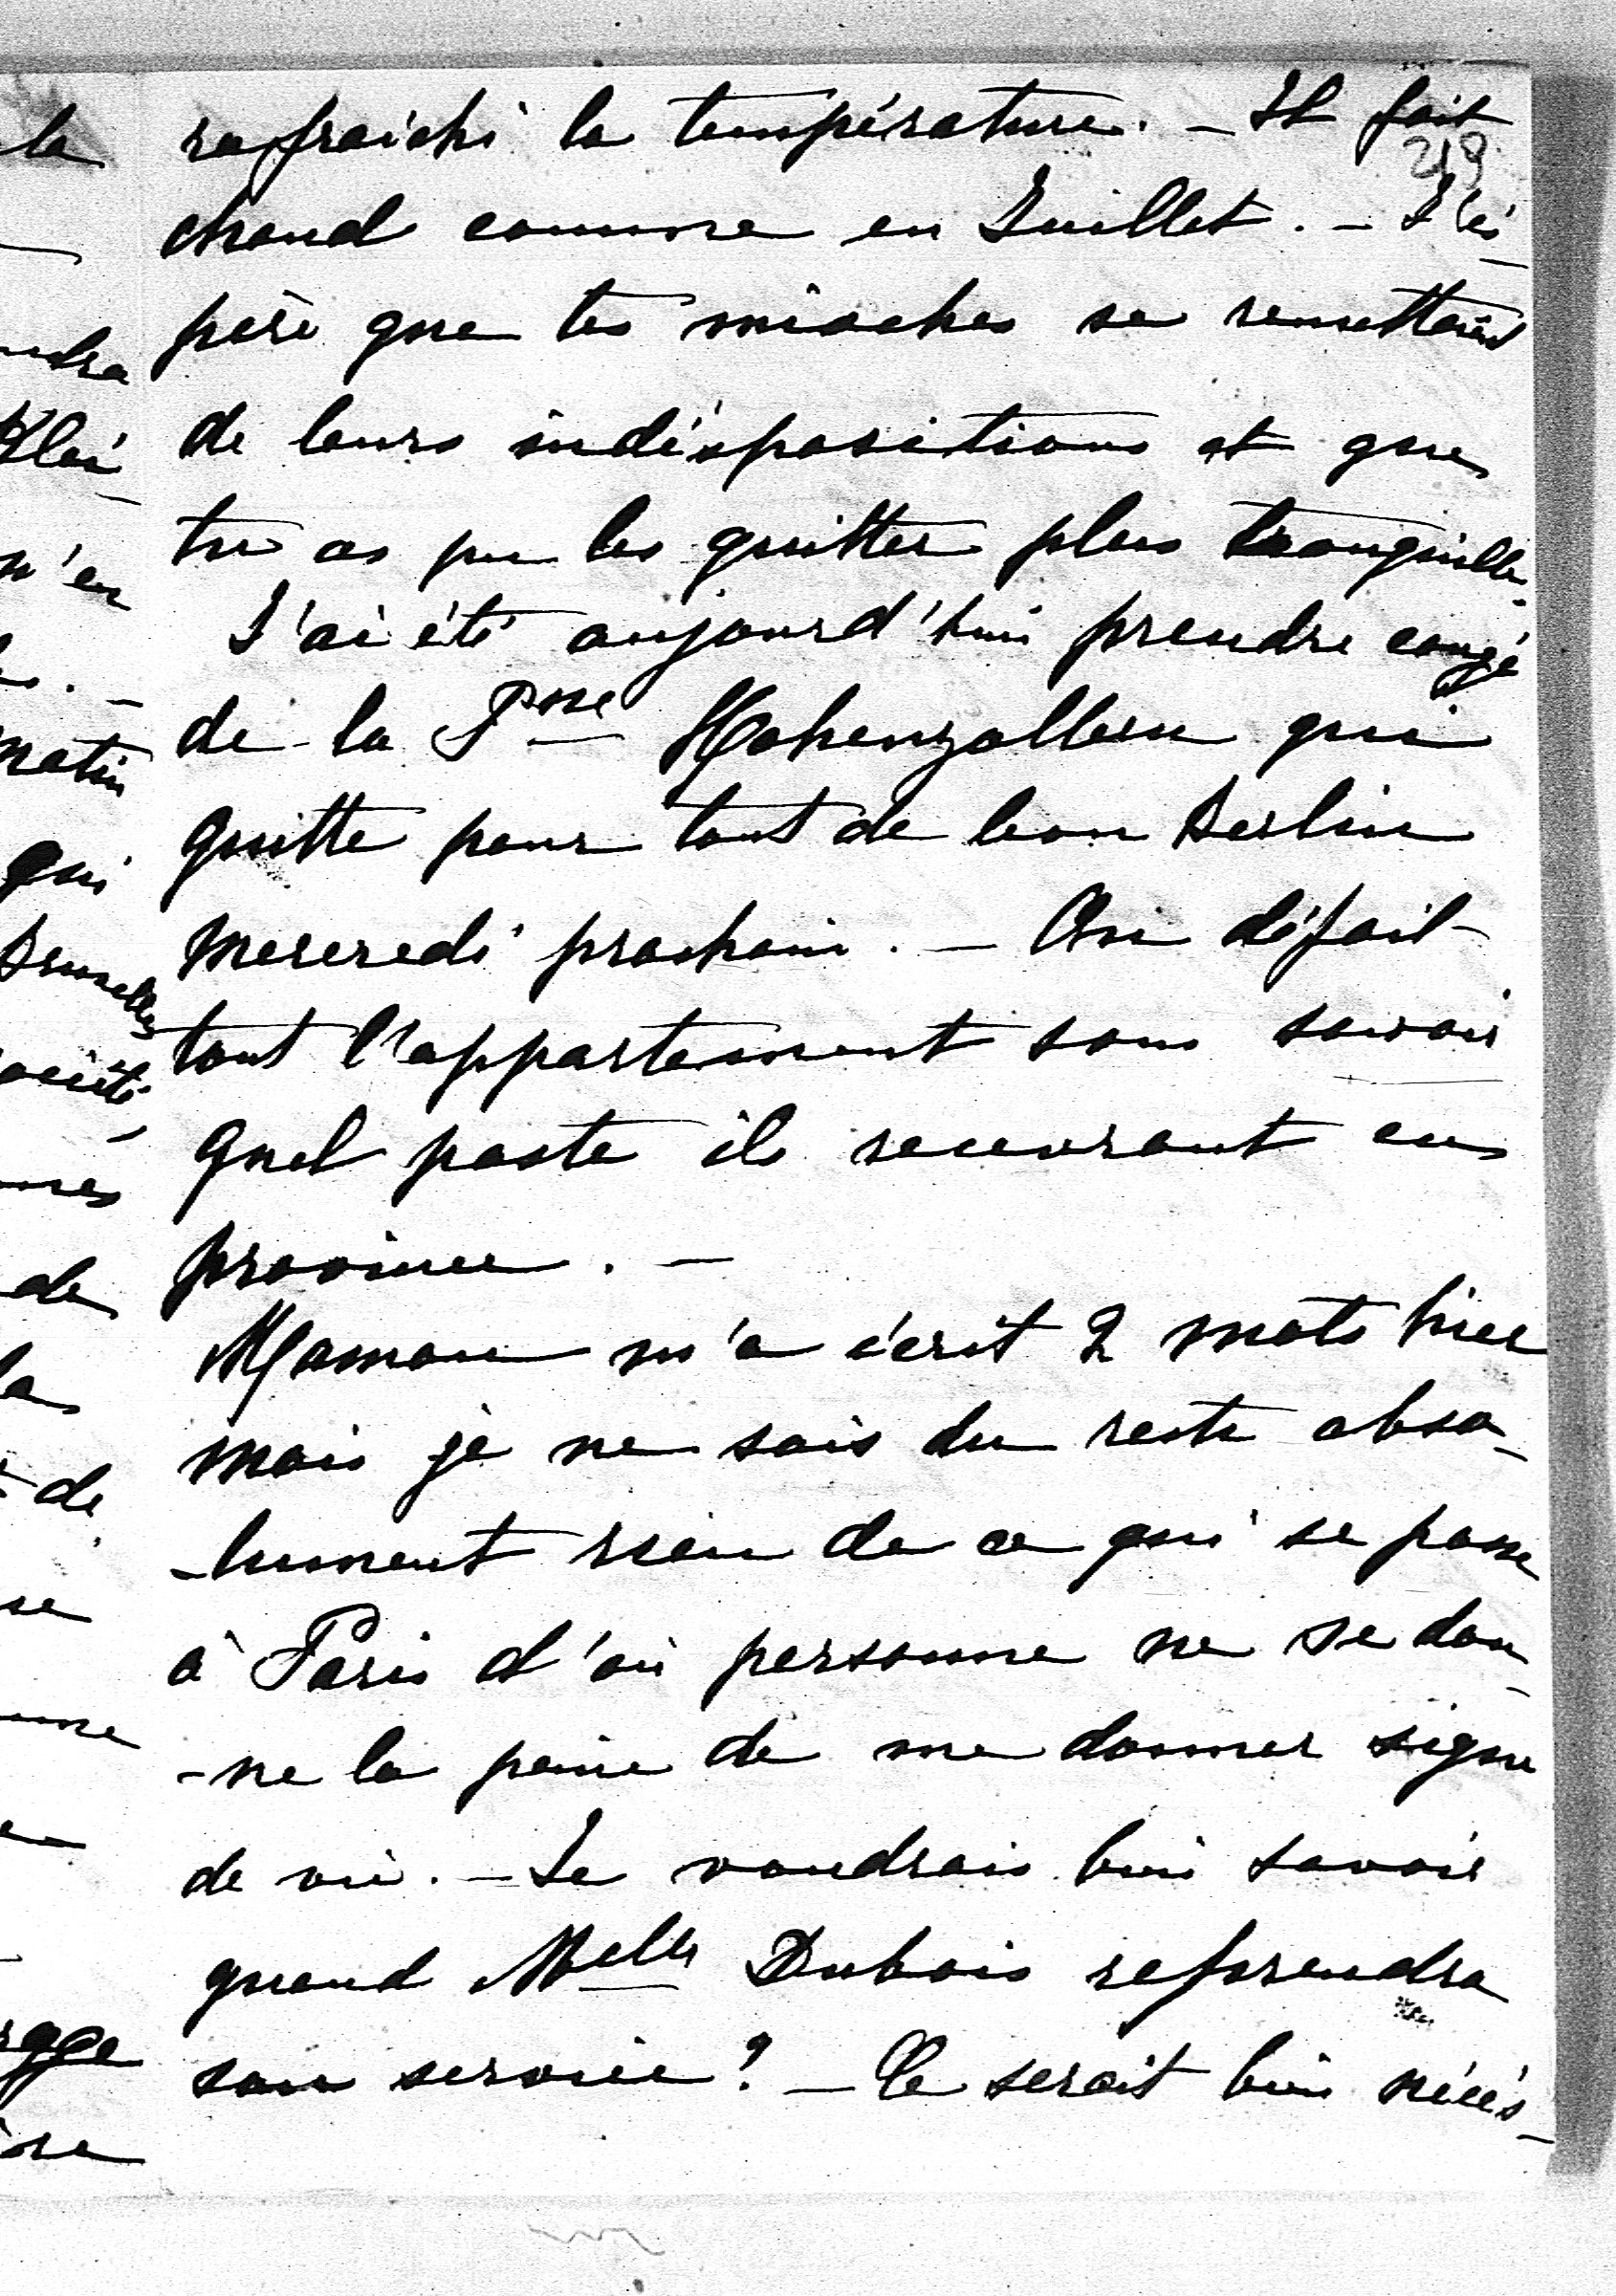 rafraîchi la température. – Il fait
219
chaud comme en Juillet. – J'es-
père que tes mioches se remettent
de leurs indéspositions et que
tu as pu les quitter plus tranquille.
J'ai été aujourd'hui prendre congé
de la Psse Hohenzollern qui
quitte pour tout de bon Berlin
Mercredi prochain. – On défait
tout l'appartement sans savoir
quel poste ils recevront en
province. –
Maman m'a écrit 2 mots hier
mais je ne sais du reste abso-
-lument rien de ce qui se passe
à Paris d'où personne ne se don-
-ne la peine de me donner signe
de vie. – Je voudrais bien savoir
quand Melle Dubois reprendra
son service? – Ce serait bien nécés-